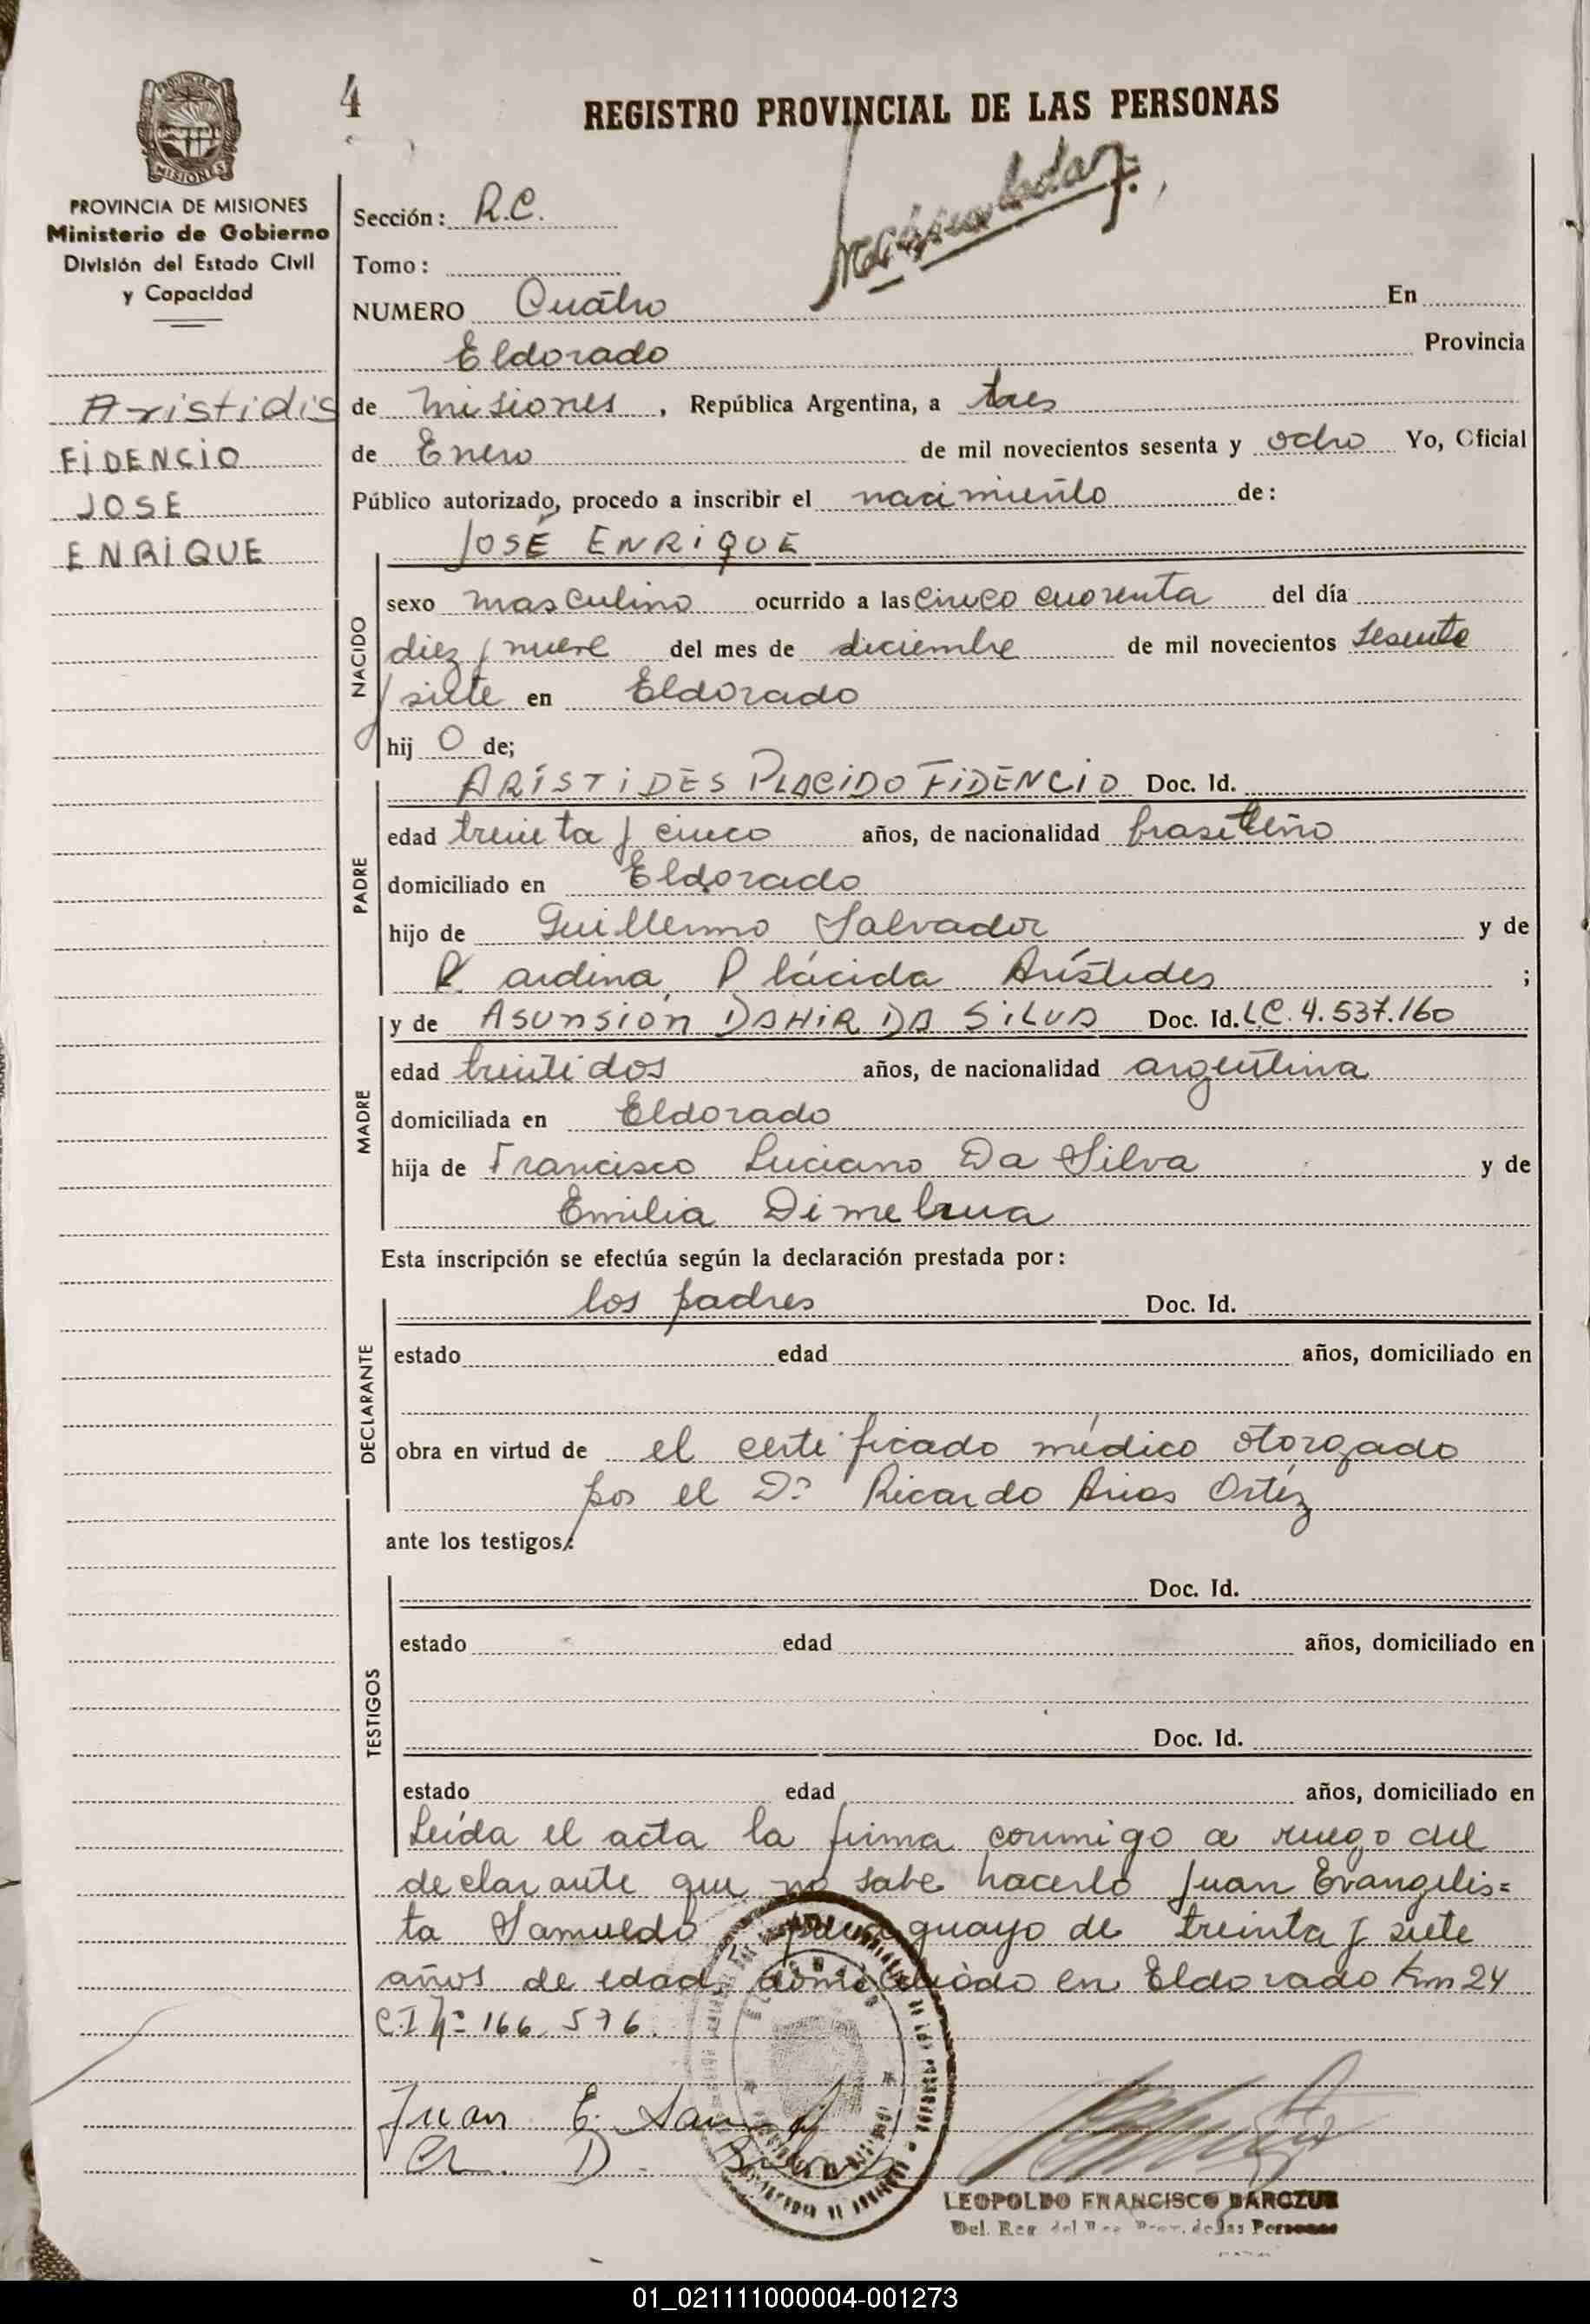 4
REGISTRO PROVINCIAL DE LAS PERSONAS
MISIONES
PROVINCIA DE MISIONES
Ministerio de Gobierno
División del Estado Civil
y Capacidad
Aristidis
FIDENCIO
JOSE
ENRIQUE
Sección: R.C.
Tomo:
NUMERO Cuatro En
Eldorado Provincia
de Misiones, República Argentina, a tres
de Enero de mil novecientos sesenta y ocho Yo, Oficial
Público autorizado, procedo a inscribir el nacimiento de:
JOSÉ ENRIQUE
NACIDO
sexo masculino ocurrido a las cinco cuarenta del día
diez y nueve del mes de diciembre de mil novecientos sesenta
y siete en Eldorado
hij o de;
PADRE
ARÍSTIDES PLACIDO FIDENCIO Doc. Id.
edad treinta y cinco años, de nacionalidad brasileño
domiciliado en Eldorado
hijo de Guillermo Salvador y de
ardina Plácida Arístides ;
MADRE
y de ASUNSIÓN DAHIR DA SILVA Doc. Id. L.C. 4.537.160
edad treintidos años, de nacionalidad argentina
domiciliada en Eldorado
hija de Francisco Luciano Da Silva y de
Emilia
Esta inscripción se efectúa según la declaración prestada por:
DECLARANTE
los padres Doc. Id.
estado edad años, domiciliado en
obra en virtud de el certificado médico otorgado
por el Dr. Ricardo Arias Ortíz
ante los testigos:
TESTIGOS
Doc. Id.
estado edad años, domiciliado en
Doc. Id.
estado edad años, domiciliado en
Leída el acta la firma conmigo a ruego del
declarante que no sabe hacerlo Juan Evangelis=
ta Samuedo paraguayo de treinta y siete
años de edad, domiciliado en Eldorado Km 24
C.I Nº 166.576.
Juan E.
D.
LEOPOLDO FRANCISCO BARCZUK
Del. Reg. del Reg. Prov. de las Personas
01_021111000004-001273